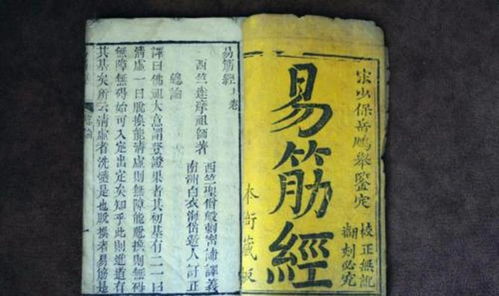 宋少保岳鵬舉鑒定
校正無訛
翻刻必究
易筋經
本衙藏板
易筋經上卷
西竺達摩祖師著
西竺聖僧般剌密諦譯義
南洲白衣海岱遊人訂正
總論
譯曰佛祖大意謂登證果者其初基有二一曰
清虛一曰脫換能清虛則無障能脫換則無礙
無障無礙始可入定出定矣知乎此則進道有
其基矣所云清虛者洗髓是也脫換者易筋是